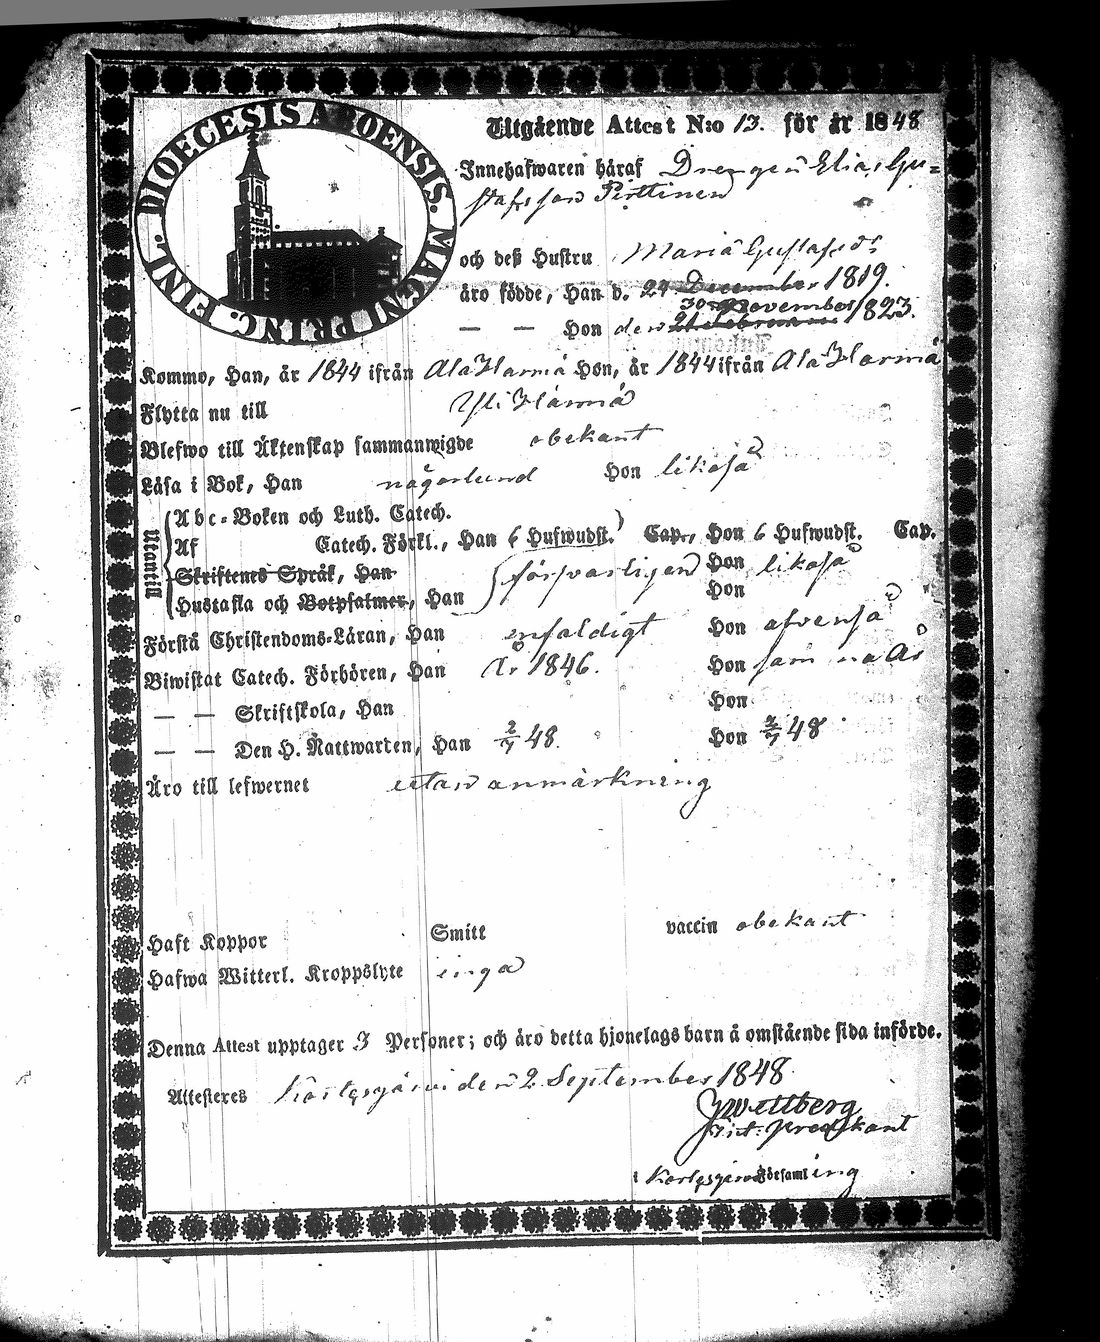 DIOECESIS ABOENSIS. MAGNI PRINC. FINL.
Utgående Attest N:o 13. för år 1848
Innehafwaren häraf Drengen Elias Gu=
stafsson Pirttinen
och deß Hustru Maria Gustafsdr
äro födde, Han d. 24 December 1819.
30 November
— — Hon den 21 Februari 1823.
Kommo, Han, år 1844 ifrån Ala Härmä Hon, år 1844 ifrån Ala Härmä
Flytta nu till Yli Härmä
Blefwo till Äktenskap sammanwigde obekant
Läsa i Bok, Han någorlund Hon likaså
Utantill
Abc-Boken och Luth. Catech.
Af Catech. Förkl., Han 6 Hufwudst. Cap., Hon 6 Hufwudst. Cap.
Skriftenes Språk, Han försvarligen Hon likaså
Hustafla och Botpsalmer, Han Hon
Förstå Christendoms-Läran, Han enfaldigt Hon äfvenså
Biwistat Catech. Förhören, Han År 1846. Hon samma År
— — Skriftskola, Han Hon
— — Den H. Nattwarden, Han 2/7 48. Hon 2/7 48
Äro till lefwernet utan anmärkning
Haft Koppor Smitt vaccin obekant
Hafwa Witterl. Kroppslyte inga
Denna Attest upptager 3 Personer; och äro detta hjonelags barn å omstående sida införde.
Attesteres Kortesjärvi den 2 September 1848.
JWettberg
Pred.kant
i Kortesjärvi Församling